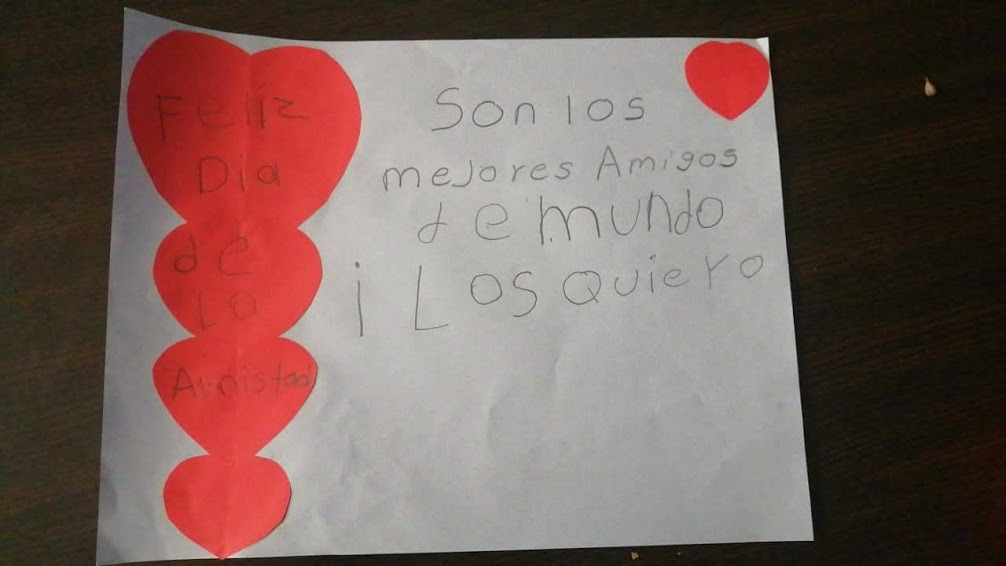 Feliz
Dia
de
La
Amistad
Son los
mejores Amigos
de mundo
¡ Los quiero